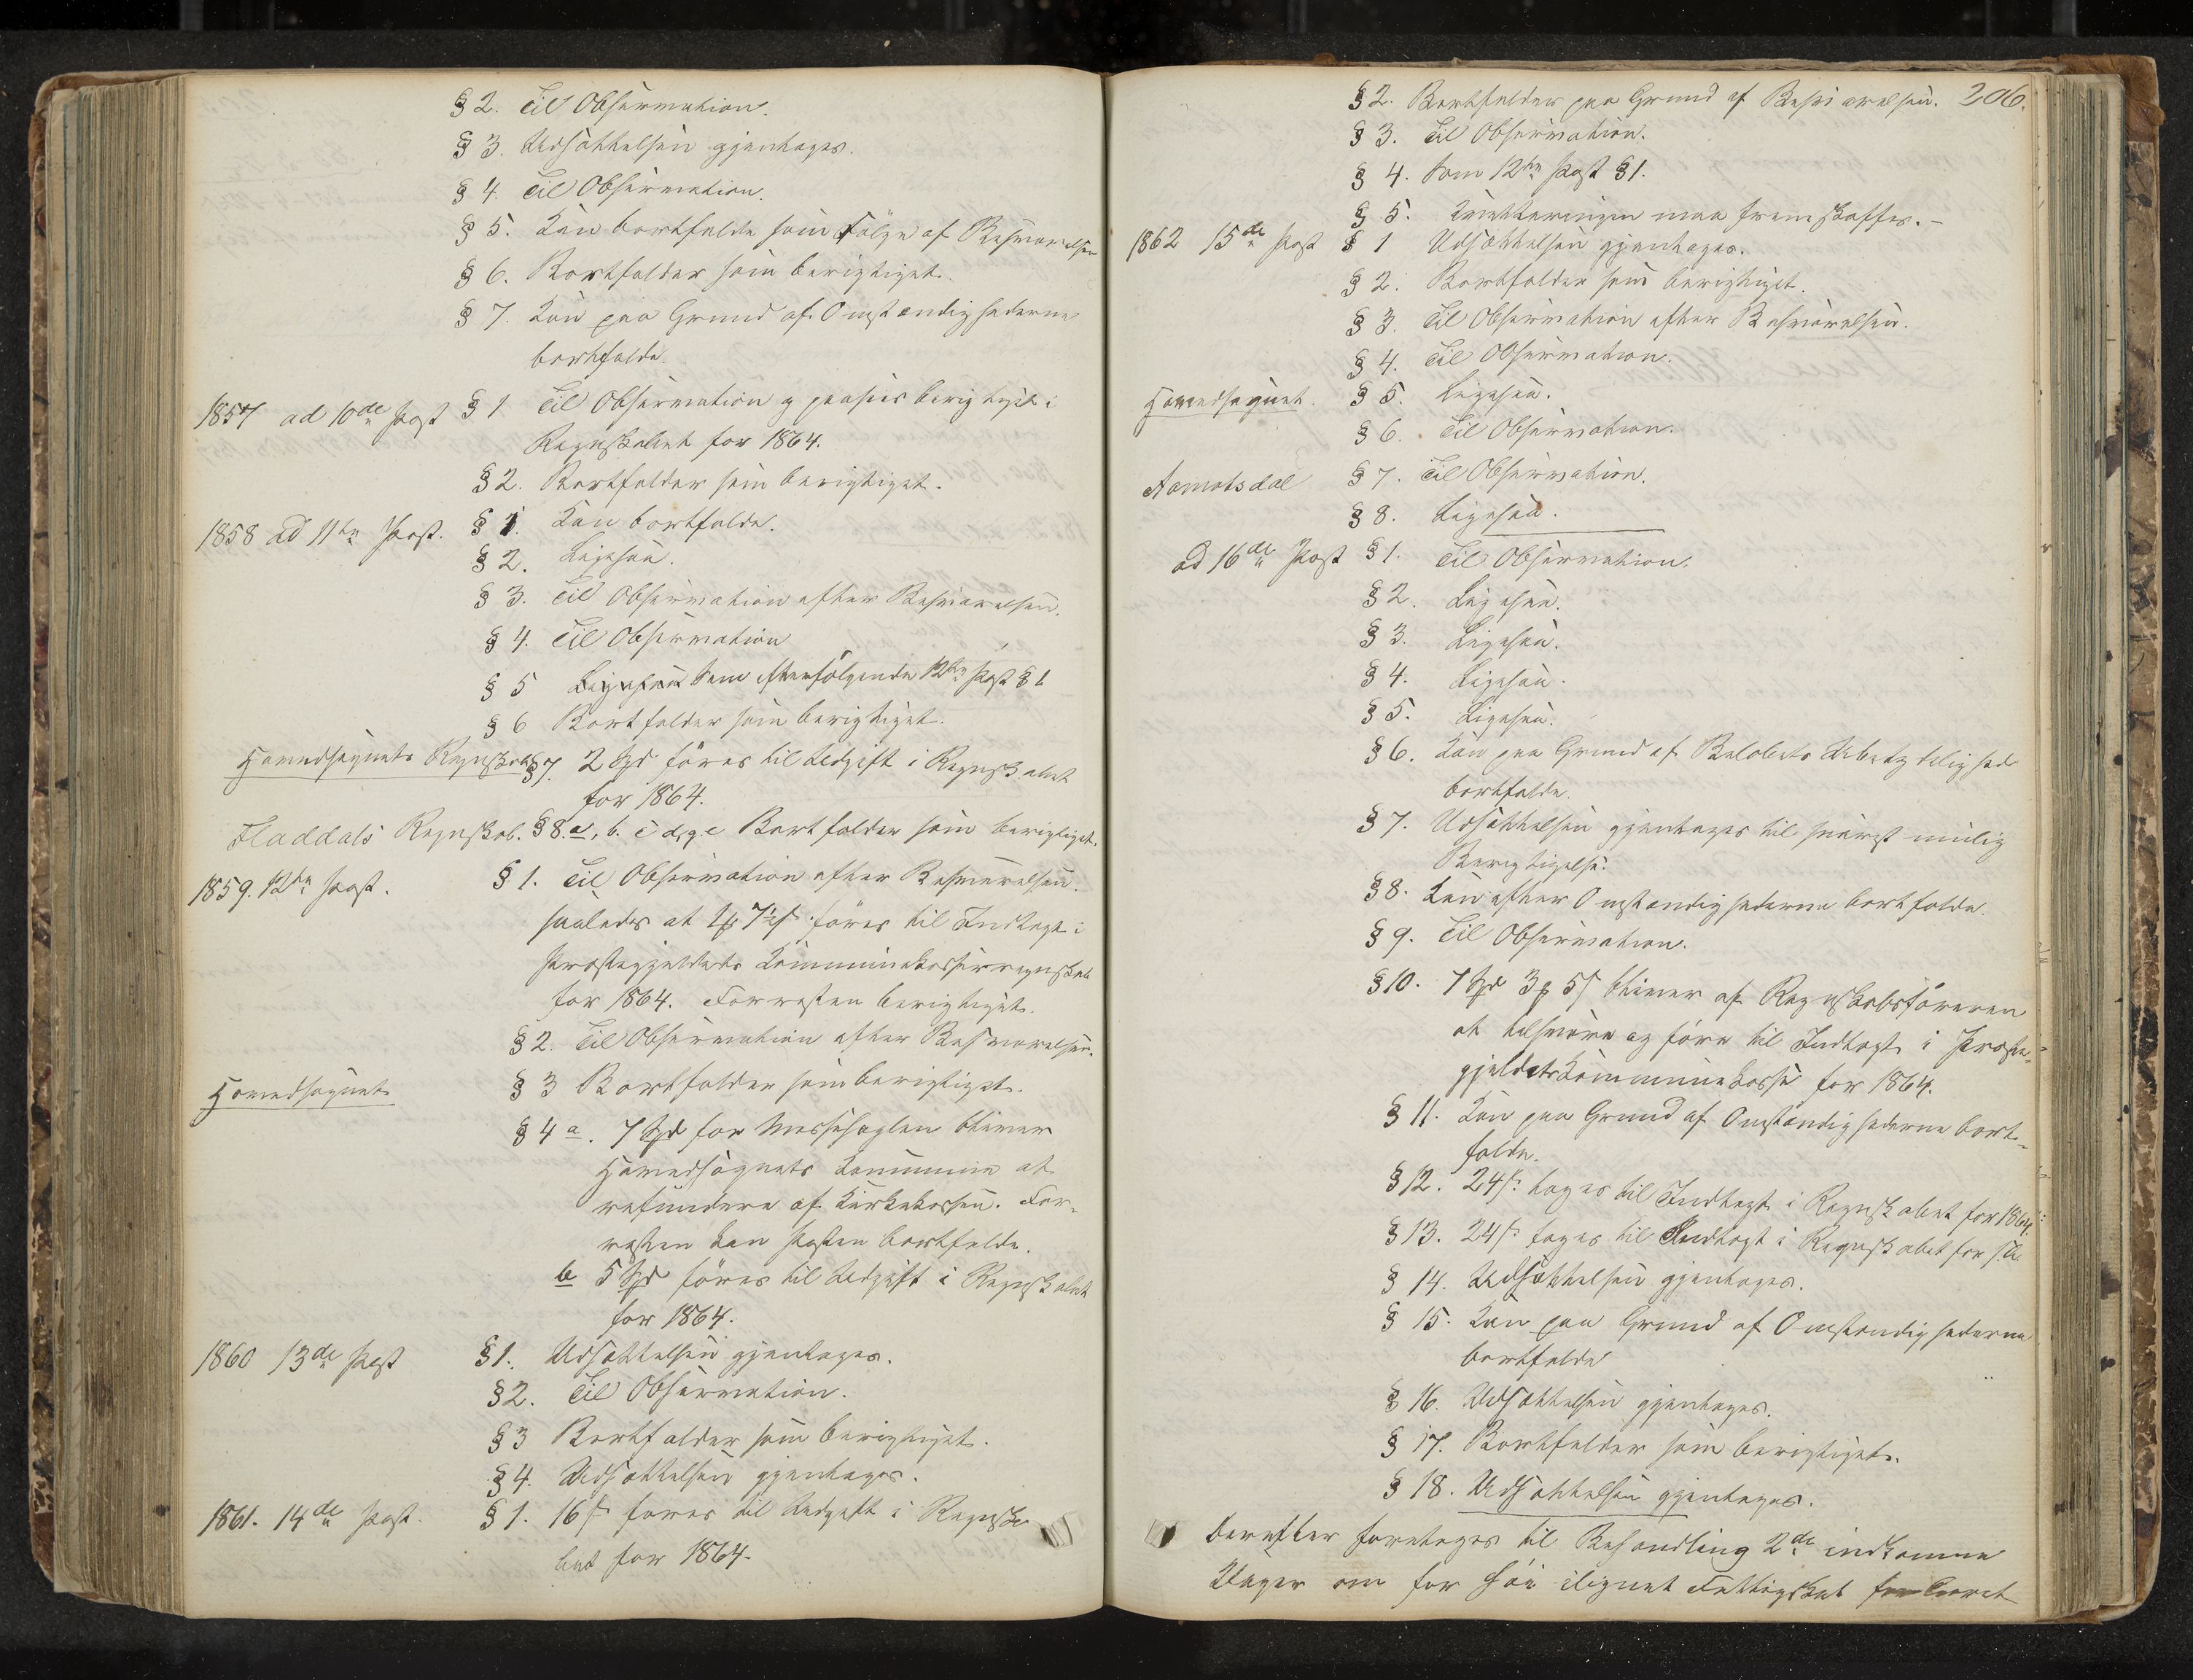 § 2. Til Observation.
§ 3. Udsættelsen gjentages.
§ 4. Til Observation.
§ 5. Kan bortfalde som Følge af Besvarelsen
§ 6. Bortfalder som berigtiget.
§ 7. Kan paa Grund af Omstændighederne
bortfalde.
1857 ad 10de Post § 1 Til Observation og paasees berigtiget i
Regnskabet for 1864.
§ 2. Bortfalder som berigtiget.
1858 ad 11te Post. § 1. Kan bortfalde.
§ 2. Ligesaa.
§ 3. Til Observation efter Besvarelsen.
§ 4. Til Observation
§ 5 Ligesaa Som efterfølgende 12te Post § 1
§ 6 Bortfalder som berigtiget.
Hovedsognets Regnskab § 7. 2 Spd føres til Udgift i Regnskabet
for 1864.
Fladdals Regnskab. § 8. a, b. c d, g. e Bortfalder som berigtiget.
1859. 12te Post. § 1. Til Observation efter Besvarelsen.
saaledes at føres til Indtægt i
Præstegjeldets Kommunekasseregnskab
for 1864. Forresten berigtiget.
§ 2. Til Observation efter Besvarelsen.
Hovedsognet § 3 Bortfalder som berigtiget.
§ 4 a. 7 Spd for Messehaglen bliver
Hovedsognets Kommune at
refundere af Kirkekassen. For-
resten kan Posten bortfalde.
b 5 Spd føres til Udgift i Regnskabet
for 1864.
1860 13de Post § 1. Udsættelsen gjentages.
§ 2. Til Observation.
§ 3 Bortfalder som berigtiget.
§ 4. Udsættelsen gjentages.
1861. 14de Post. § 1. 16 s føres til Udgift i Regnska
bet for 1864.
§ 2. Bortfalder paa Grund af Besvarelsen. 206.
§ 3. Til Observation.
§ 4. Som 12te Post § 1.
§ 5. Qvitteringen maa fremskaffes. -
1862 15de Post § 1 Udsættelsen gjentages.
§ 2. Bortfalder som berigtiget.
§ 3. Til Observation efter Besvarelsen.
§ 4. Til Observation.
Hovedsognet. § 5. Ligesaa.
§ 6. Til Observation.
Aamotsdal § 7. Til Observation.
§ 8. Ligesaa.
ad 16de Post § 1. Til Observation.
§ 2. Ligesaa.
§ 3. Ligesaa.
§ 4. Ligesaa.
§ 5. Ligesaa.
§ 6. Kan paa Grund af Beløbets Ubetydelighed
bortfalde.
§ 7. Udsættelsen gjentages til snarest mulig
Berigtigelse.
§ 8. Kan efter Omstændighederne bortfalde.
§ 9. Til Observation.
§ 10. 7 Spd 3 5 s bliver af Regnskabsføreren
at tilsvare og føre til Indtægt i Præste-
gjeldets Kommunekasse for 1864.
§ 11. Kan paa Grund af Omstændighederne bort-
falde.
§ 12. 24 s tages til Indtægt i Regnskabet for 1864.
§ 13. 24 s tages til Indtægt i Regnskabet for s. A.
§ 14. Udsættelsen gjentages.
§ 15. Kan paa Grund af Omstændighederne
bortfalde
§ 16. Udsættelsen gjentages.
§ 17. Bortfalder som berigtiget.
§ 18. Udsættelsen gjentages.
Derefter foretoges til Behandling 2de indkomne
Klager om for høi ilignet Fattigskat